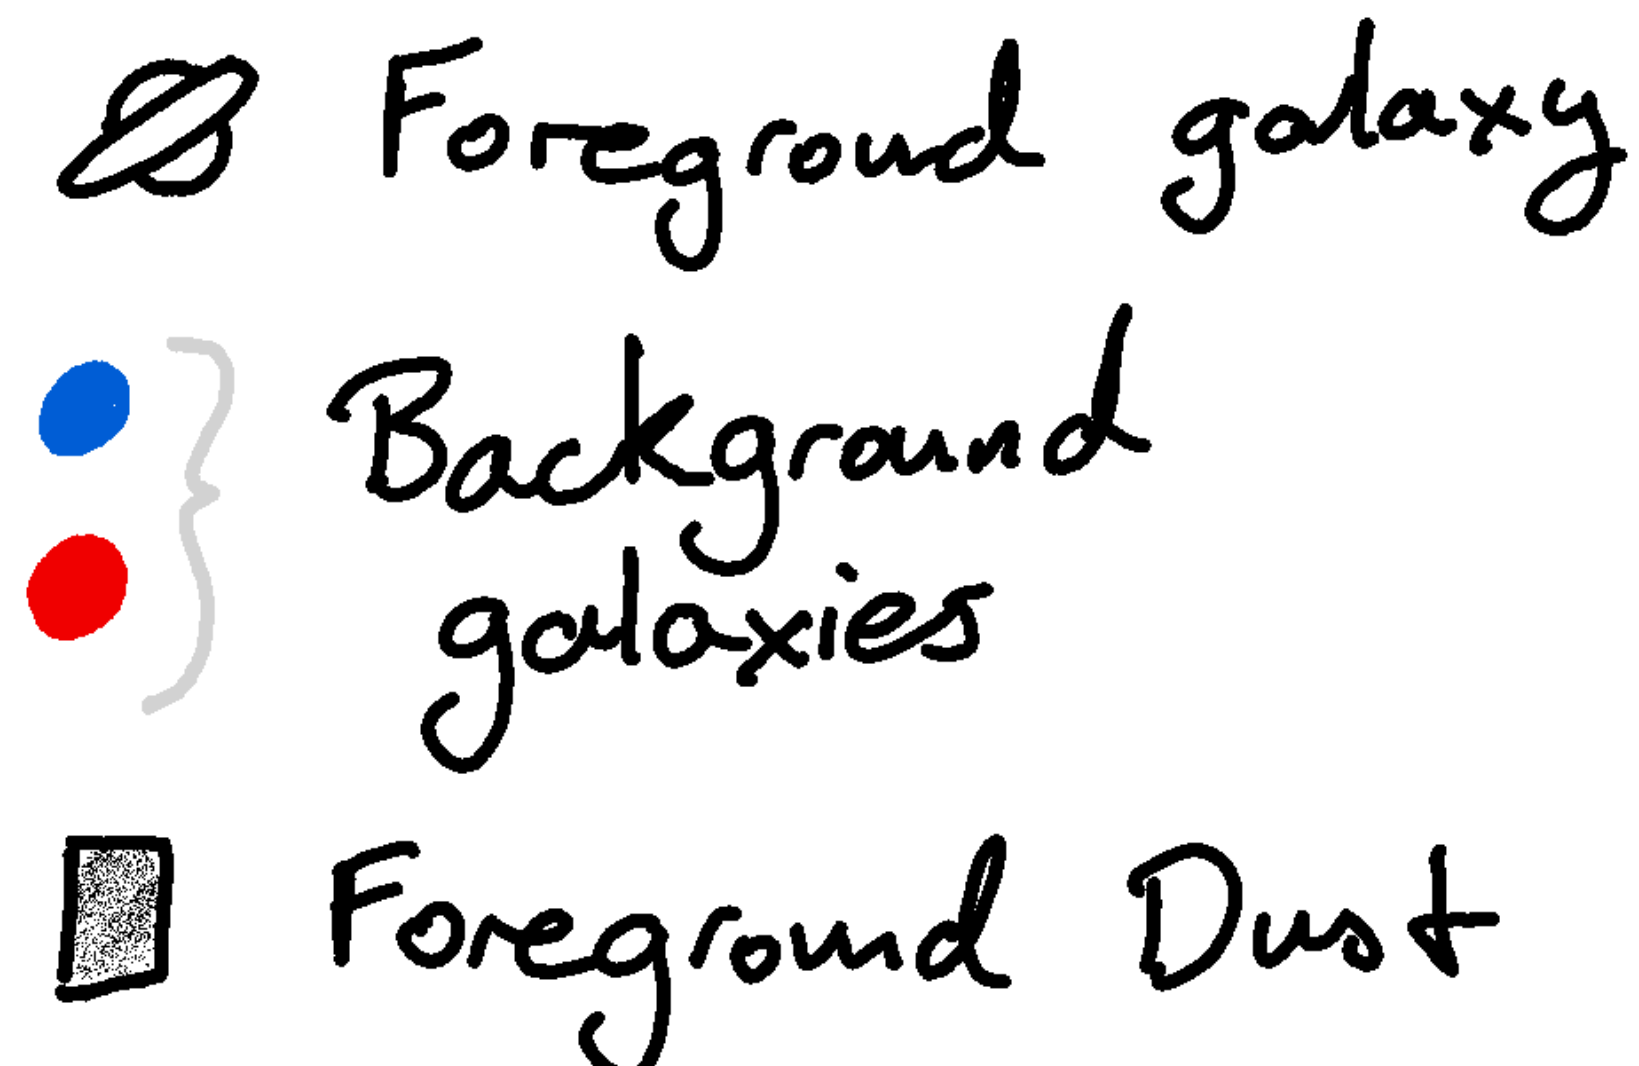 Foreground galaxy
Background
galaxies
Foreground Dust